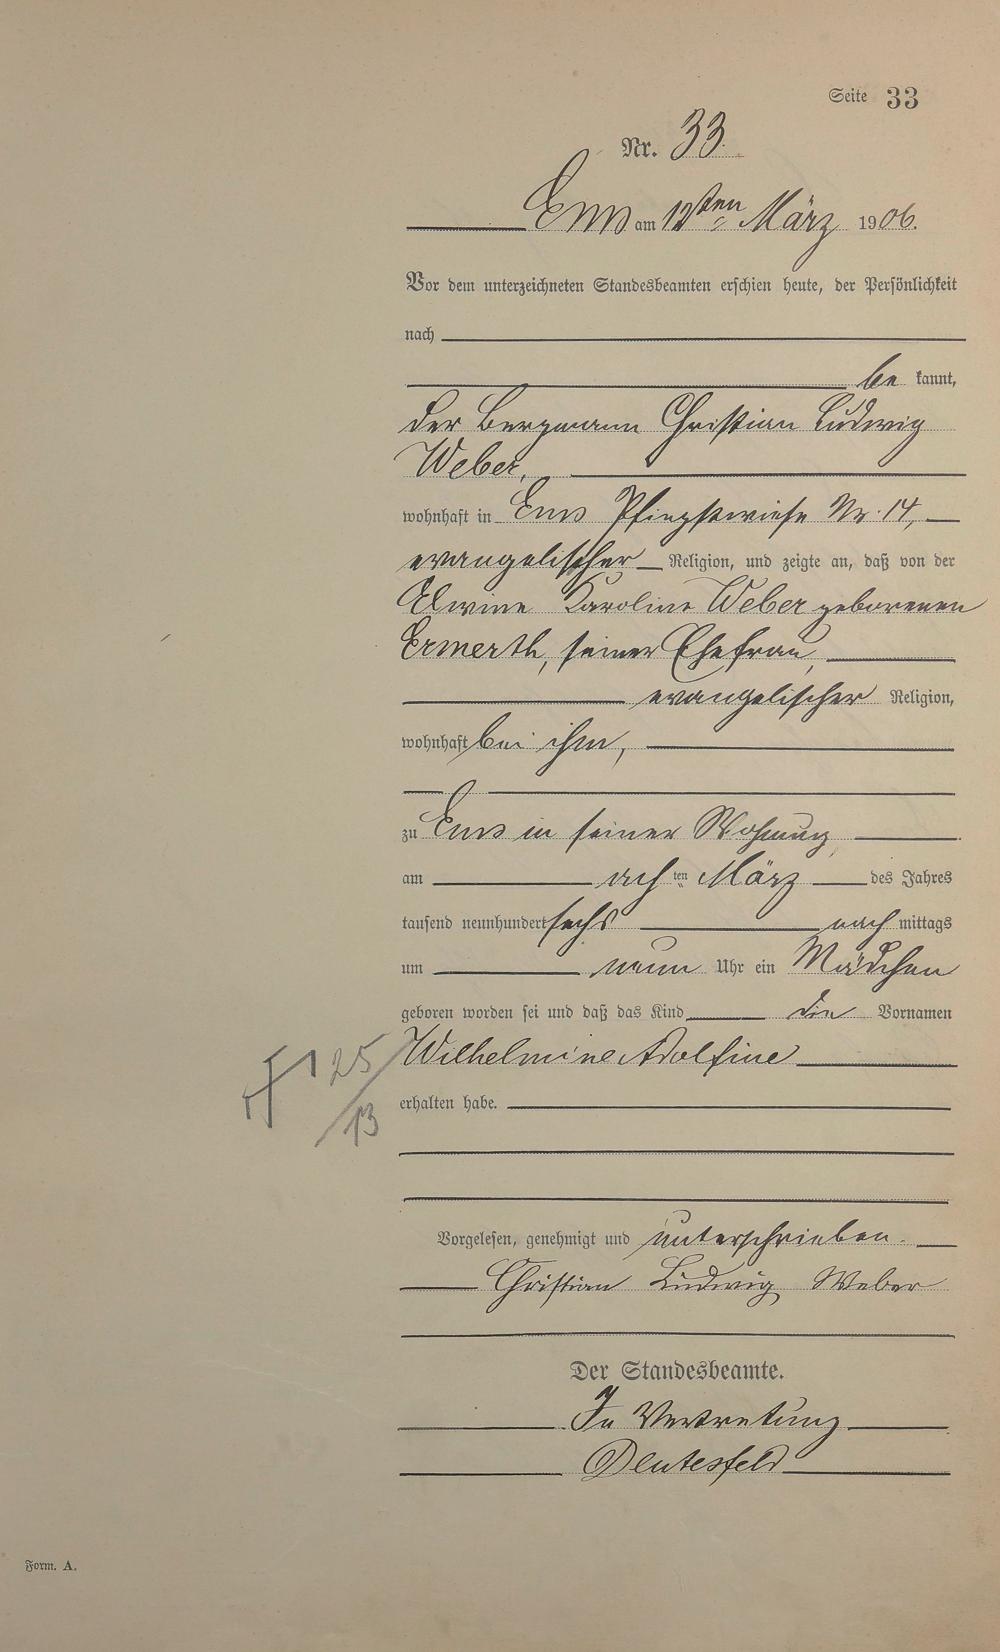 Seite 33
Nr. 33.
Ems am 12ten März 1906.
Vor dem unterzeichneten Standesbeamten erschien heute, der Persönlichkeit
nach
be kannt,
der Bergmann Christian Ludwig
Weber,
wohnhaft in Ems Pfingstwiese Nr. 14,
evangelischer Religion, und zeigte an, daß von der
Elwine Karoline Weber geborenen
Ermerth, seiner Ehefrau,
evangelischer Religion,
wohnhaft bei ihm,
zu Ems in seiner Wohnung,
am acht ten März des Jahres
tausend neunhundert sechs nach mittags
um neun Uhr ein Mädchen
geboren worden sei und daß das Kind die Vornamen
Wilhelmine Adolfine
25/13
erhalten habe.
Vorgelesen, genehmigt und unterschrieben.
Christian Ludwig Weber
Der Standesbeamte.
In Vertretung
Form. A.